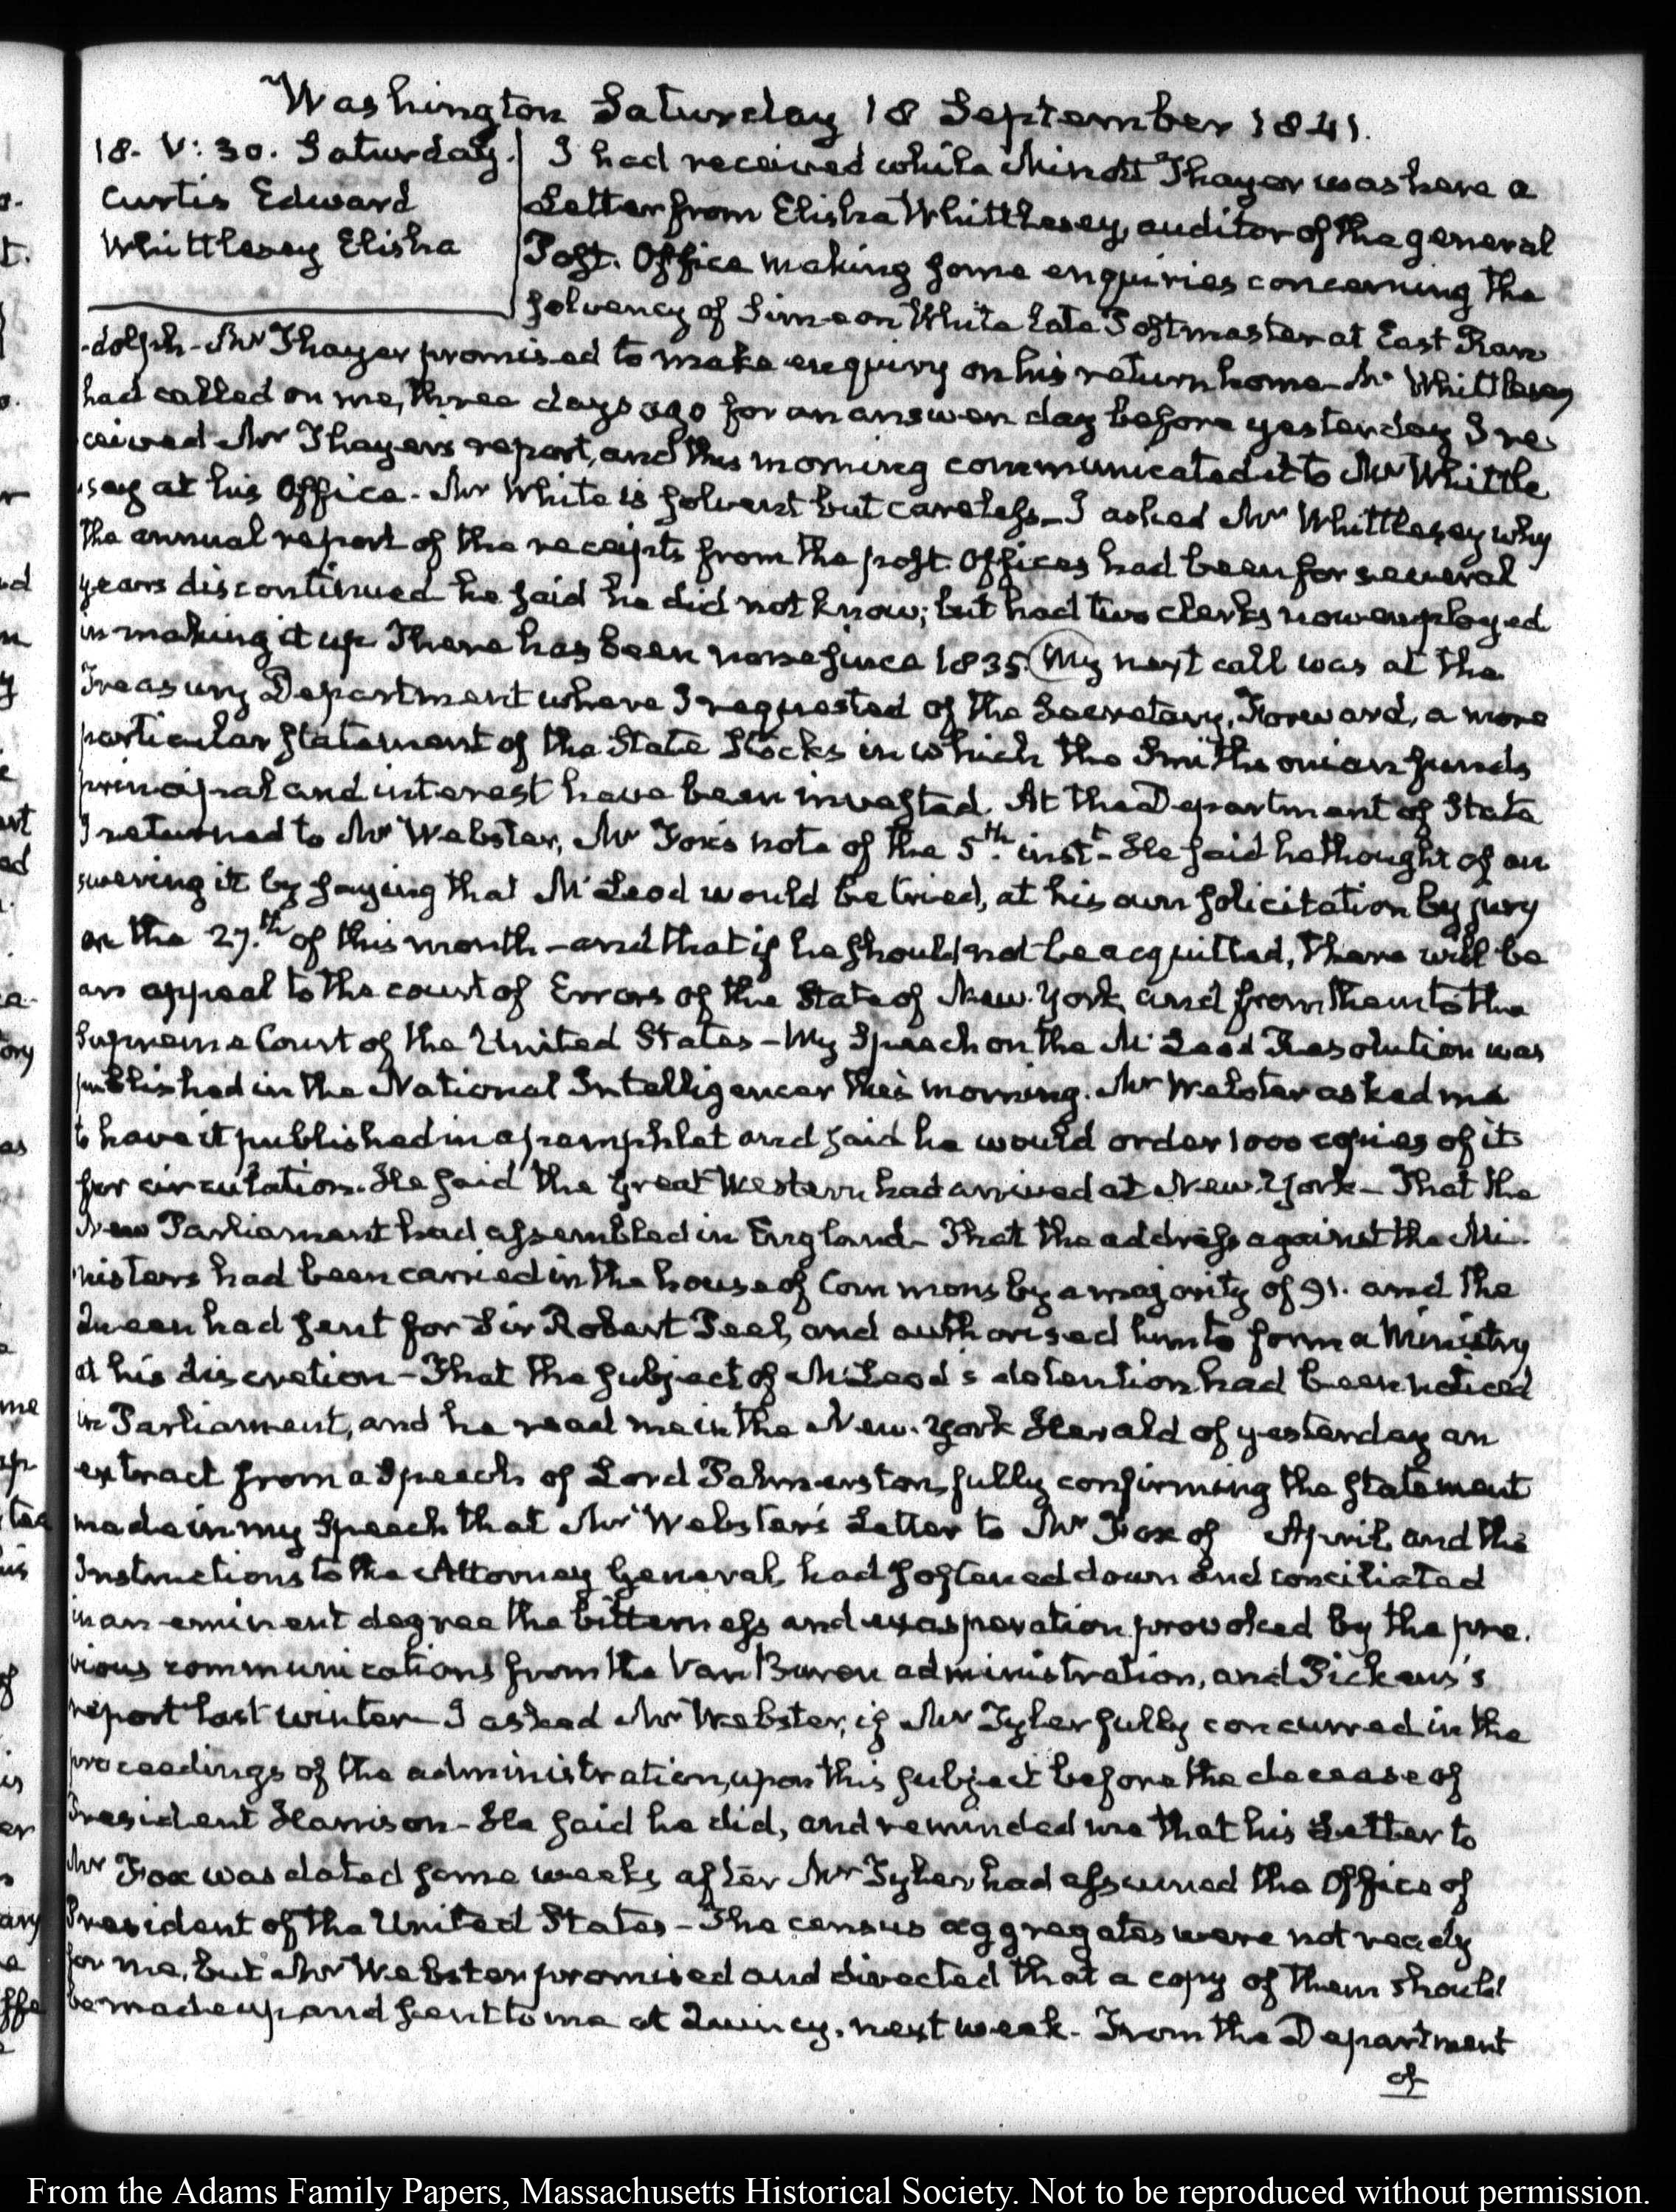 Washington Saturday 18 September 1841.
18. V: 30. Saturday.
Curtis Edward
Whittlesey Elisha
I had received while Minott Thayer was here a
Letter from Elisha Whittlesey, auditor of the general
Post. Office making some enquiries concerning the
solvency of Simeon White late Postmaster at East Ran
-dolph - Mr Thayer promised to make enquiry on his return home - Mr Whittlesey
had called on me, three days ago for an answer day before yesterday I re
ceived Mr Thayer's report, and this morning communicated it to Mr Whittle
sey at his Office. Mr White is solvent but careless - I asked Mr Whittlesey why
the annual report of the receipts from the post. Offices had been for several
years discontinued he said he did not know; but had two clerks now employed
in making it up There has been none since 1835. My next call was at the
Treasury Department where I requested of the Secretary, Forward, a more
particular statement of the State Stocks in which the Smithsonian funds
principal and interest have been invested. At the Department of State
I returned to Mr Webster, Mr Fox's note of the 5th. inst - He said he thought of an
swering it by saying that McLeod would be tried, at his own solicitation by jury
on the 27th. of this month - and that if he should not be acquitted, there will be
an appeal to the court of Errors of the State of New. York, and from them to the
Supreme Court of the United States - My Speech on the McLeod Resolution was
published in the National Intelligencer this morning. Mr Webster asked me
to have it published in a pamphlet and said he would order 1000 copies of it
for circulation. He said the Great Western had arrived at New. York - That the
New Parliament had assembled in England - That the address against the Mi-
nisters had been carried in the house of Commons by a majority of 91. and the
Queen had sent for Sir Robert Peel, and authorised him to form a Ministry
at his discretion - That the subject of McLeod's detention had been noticed
in Parliament, and he read me in the New. York Herald of yesterday an
extract from a Speech of Lord Palmerston, fully confirming the statement
made in my Speech that Mr Webster's Letter to Mr Fox of April, and the
Instructions to the Attorney General, had softened down and conciliated
in an eminent degree the bitterness and exasperation provoked by the pre.
vious communications from the Van Buren administration, and Pickens's
report last winter - I asked Mr Webster, if Mr Tyler fully concurred in the
proceedings of the administration, upon this subject before the decease of
President Harrison - He said he did, and reminded me that his Letter to
Mr Fox was dated some weeks after Mr Tyler had assumed the Office of
President of the United States - The census aggregates were not ready
for me, but Mr Webster promised and directed that a copy of them should
be made up and sent to me at Quincy, next week - From the Department
of
From the Adams Family Papers, Massachusetts Historical Society. Not to be reproduced without permission.